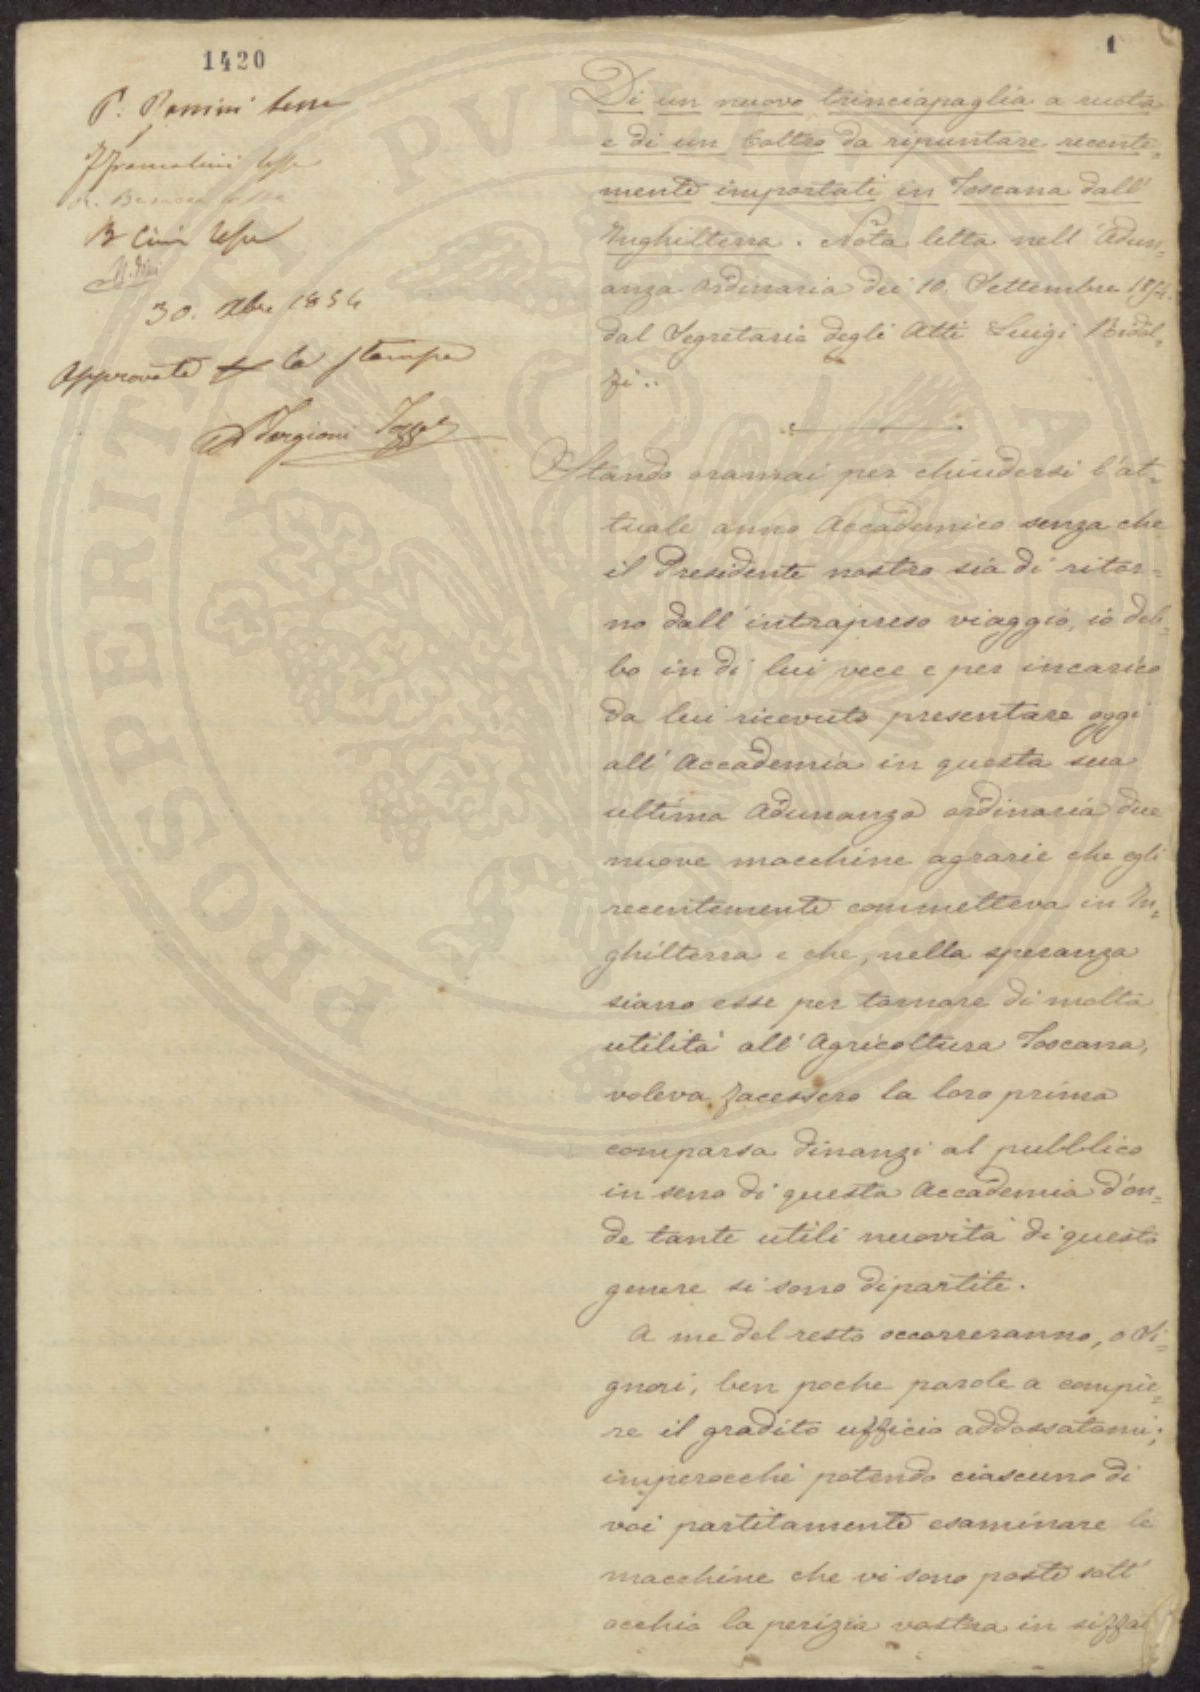 1420
1
Di un nuovo trinciapaglia a ruota
e di un Coltro da ripuntare recente-
mente importati in Toscana dall'
Inghilterra. Nota letta nell'Adun-
anza ordinaria dei 10. Settembre 1854.
dal Segretario degli Atti Luigi Ridol-
fi..
P. Passini lesse
lesse
B Cini lesse
30. Xbre 1854
Approvato per la stampa
Targioni Tozzi
Stando oramai per chiudersi l'at-
tuale anno Accademico senza che
il Presidente nostro sia di ritor-
no dall'intrapreso viaggio, io deb-
bo in di lui vece e per incarico
da lui ricevuto presentare oggi
all'Accademia in questa sua
ultima Adunanza ordinaria due
nuove macchine agrarie che egli
recentemente commetteva in In-
ghilterra e che, nella speranza
siano esse per tornare di molta
utilità all'Agricoltura Toscana,
voleva facessero la loro prima
comparsa dinanzi al pubblico
in seno di questa Accademia d'on-
de tante utili nuovità di questo
genere si sono dipartite.
A me del resto occorreranno, o Si-
gnori, ben poche parole a compie-
re il gradito ufficio addossatomi;
imperocchè potendo ciascuno di
voi partitamente esaminare le
macchine che vi sono poste sott'
occhio la perizia vostra in siffat
PROSPERITATI PVBLICAE